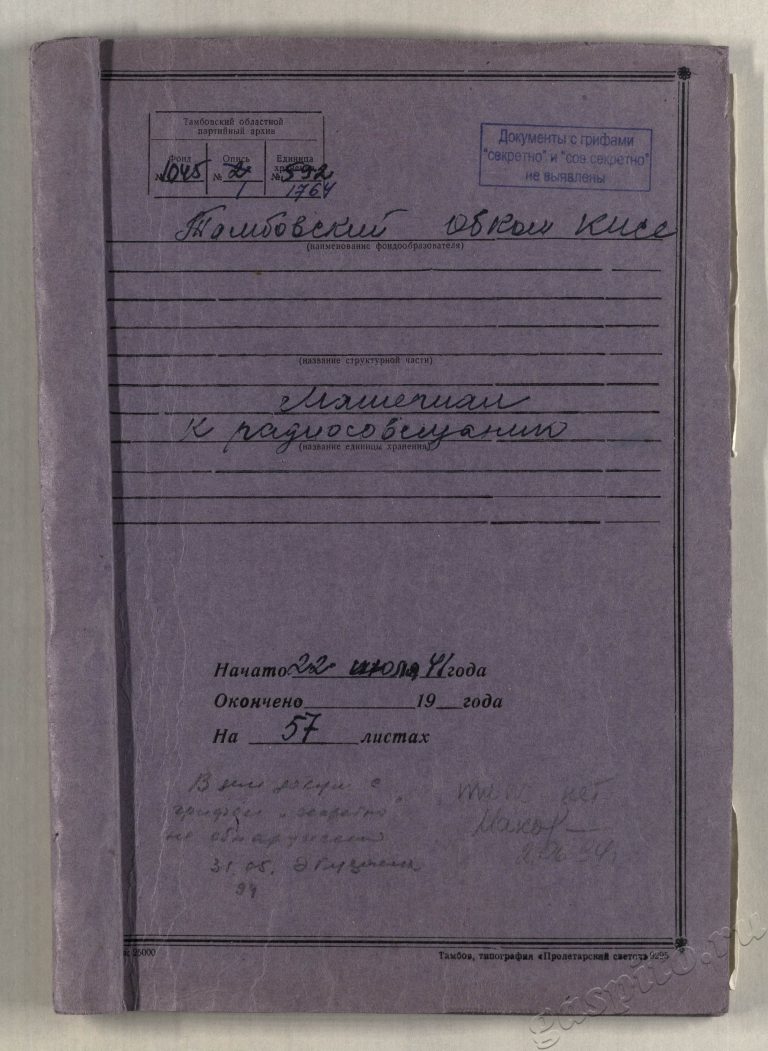 Тамбовский областной
партийный архив
Фонд Опись Единица
хранения
№ 1045 № 2 № 592
1 1764
Документы с грифами
"секретно" и "сов секретно"
не выявлены
Тамбовский обком КПСС
(наименование фондообразователя)
(название структурной части)
Материал
к радиосовещанию
(название единицы хранения)
Начато 22 июля 41 года
Окончено 19 года
На 57 листах
В деле докум с
грифом "секретно"
не обнаружено
31.05.
94
нет
25000
Тамбов, типография «Пролетарский светоч» 9295
gaspito.ru